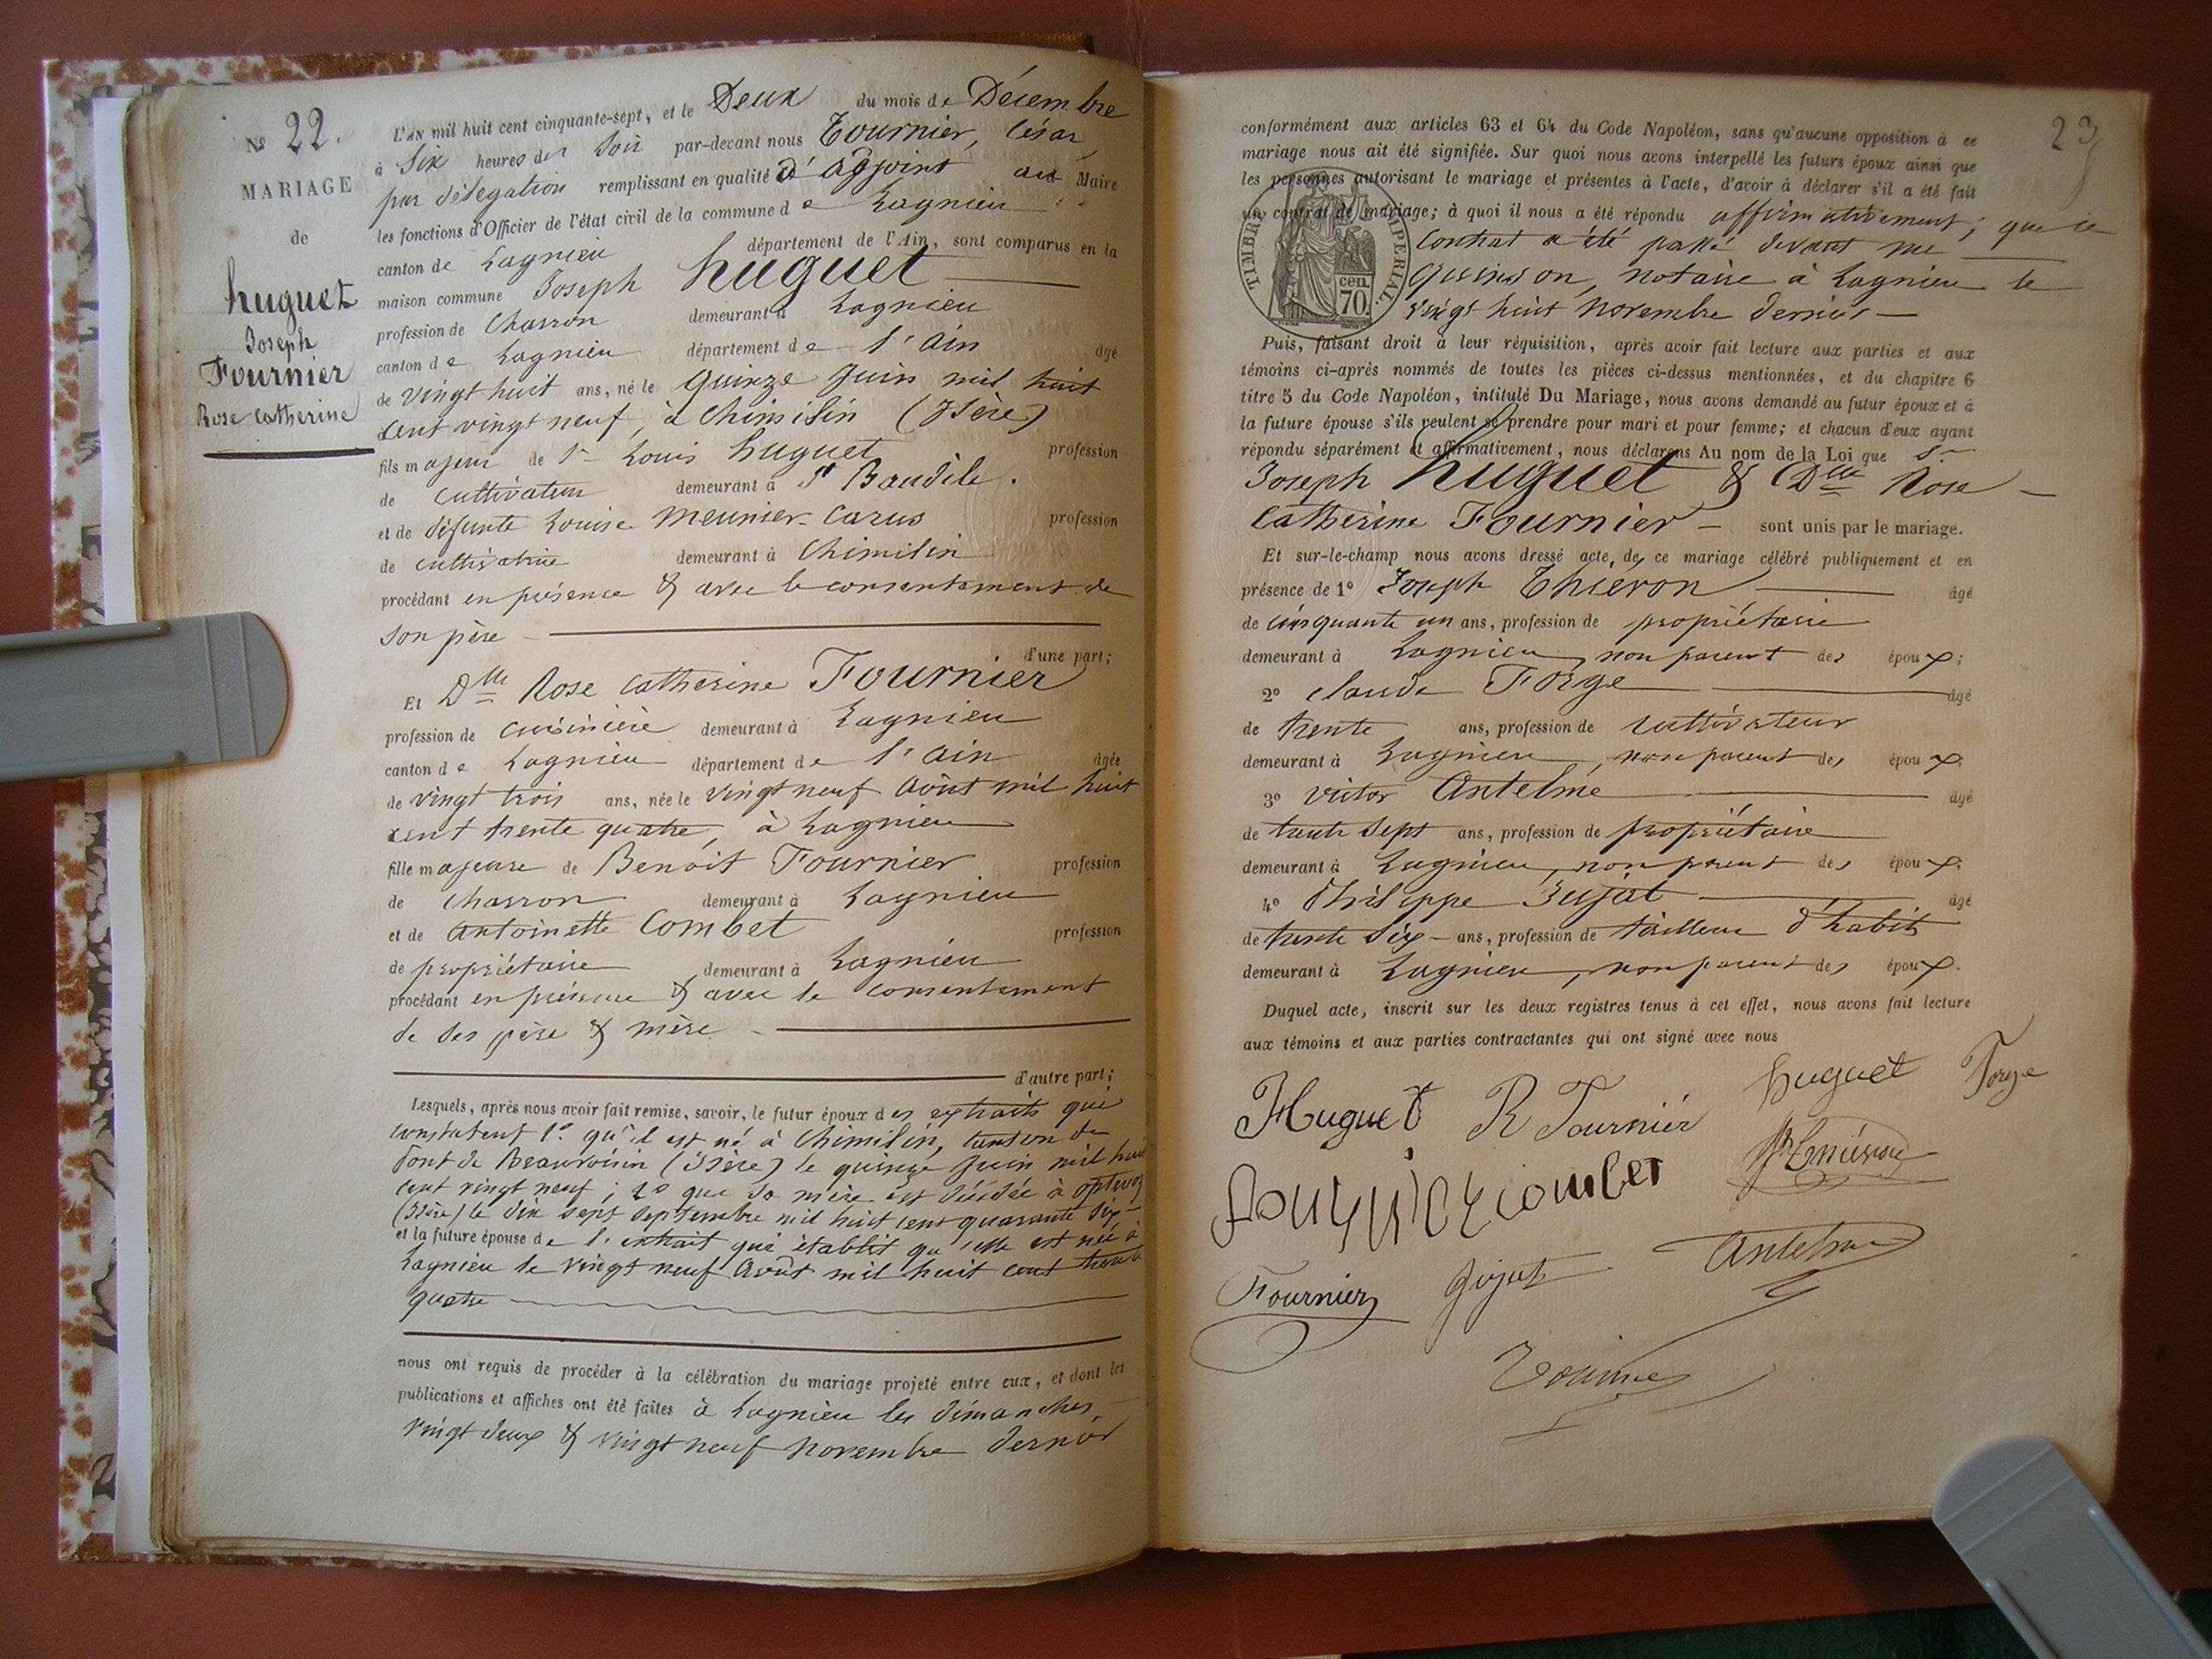 N° 22.
MARIAGE
de
huguet
Joseph
Fournier
Rose Catherine
L'AN mil huit cent cinquante-sept, et le Deux du mois de Décembre
à Six heures du Soir par-devant nous Tournier, César,
par délégation remplissant en qualité d'adjoint au Maire
les fonctions d'Officier de l'état civil de la commune de Lagnieu
canton de Lagnieu département de l'Ain, sont comparus en la
maison commune Joseph huguet
profession de Charron demeurant à Lagnieu
canton de Lagnieu département de l'Ain âgé
de vingt huit ans, né le quinze Juin mil huit
cent vingt neuf, à Chimilin (Isère)
fils majeur de Sr Louis huguet profession
de cultivateur demeurant à St Baudile.
et de défunte Louise Meunier-Carus profession
de cultivatrice demeurant à Chimilin
procédant en présence & avec le consentement de
son père
d'une part;
Et Dlle Rose Catherine Fournier
profession de cuisinière demeurant à Lagnieu
canton de Lagnieu département de l'Ain âgée
de vingt trois ans, née le vingt neuf Août mil huit
cent trente quatre, à Lagnieu
fille majeure de Benoit Fournier profession
de Charron demeurant à Lagnieu
et de Antoinette Combet profession
de propriétaire demeurant à Lagnieu
procédant en présence & avec le consentement
de ses père & mère
d'autre part;
Lesquels, après nous avoir fait remise, savoir, le futur époux des extraits qui
constatent 1°. qu'il est né à Chimilin, canton de
Pont de Beauvoisin (Isère) le quinze Juin mil huit
cent vingt neuf; 2° que sa mère est décédée à Optevoz
(Isère) le dix sept Septembre mil huit cent quarante six
et la future épouse de l'extrait qui établit qu'elle est née à
Lagnieu le vingt neuf Août mil huit cent trente
quatre
nous ont requis de procéder à la célébration du mariage projeté entre eux, et dont les
publications et affiches ont été faites à Lagnieu les dimanches
vingt deux & vingt neuf novembre dernier
23
conformément aux articles 63 et 64 du Code Napoléon, sans qu'aucune opposition à ce
mariage nous ait été signifiée. Sur quoi nous avons interpellé les futurs époux ainsi que
les personnes autorisant le mariage et présentes à l'acte, d'avoir à déclarer s'il a été fait
un contrat de mariage; à quoi il nous a été répondu affirmativement; que ce
contrat a été passé devant me
Quinson, notaire à Lagnieu le
vingt huit novembre dernier
TIMBRE IMPERIAL.
cen.
70.
Puis, faisant droit à leur réquisition, après avoir fait lecture aux parties et aux
témoins ci-après nommés de toutes les pièces ci-dessus mentionnées, et du chapitre 6
titre 5 du Code Napoléon, intitulé Du Mariage, nous avons demandé au futur époux et à
la future épouse s'ils veulent se prendre pour mari et pour femme; et chacun d'eux ayant
répondu séparément et affirmativement, nous déclarons Au nom de la Loi que Sr
Joseph huguet & Dlle Rose
Catherine Fournier sont unis par le mariage.
Et sur-le-champ nous avons dressé acte, de ce mariage célébré publiquement et en
présence de 1° Joseph Thiévon âgé
de cinquante un ans, profession de propriétaire
demeurant à Lagnieu, non parent des époux;
2° Claude Forge âgé
de trente ans, profession de cultivateur
demeurant à Lagnieu, non parent des époux;
3° Victor Antelme âgé
de trente sept ans, profession de propriétaire
demeurant à Lagnieu, non parent des époux;
4° Philippe Jujat âgé
de trente six ans, profession de tailleur d'habits
demeurant à Lagnieu, non parent des époux.
Duquel acte, inscrit sur les deux registres tenus à cet effet, nous avons fait lecture
aux témoins et aux parties contractantes qui ont signé avec nous
Huguet R Fournier huguet Forge
combet
Fournier Jujat Antelme